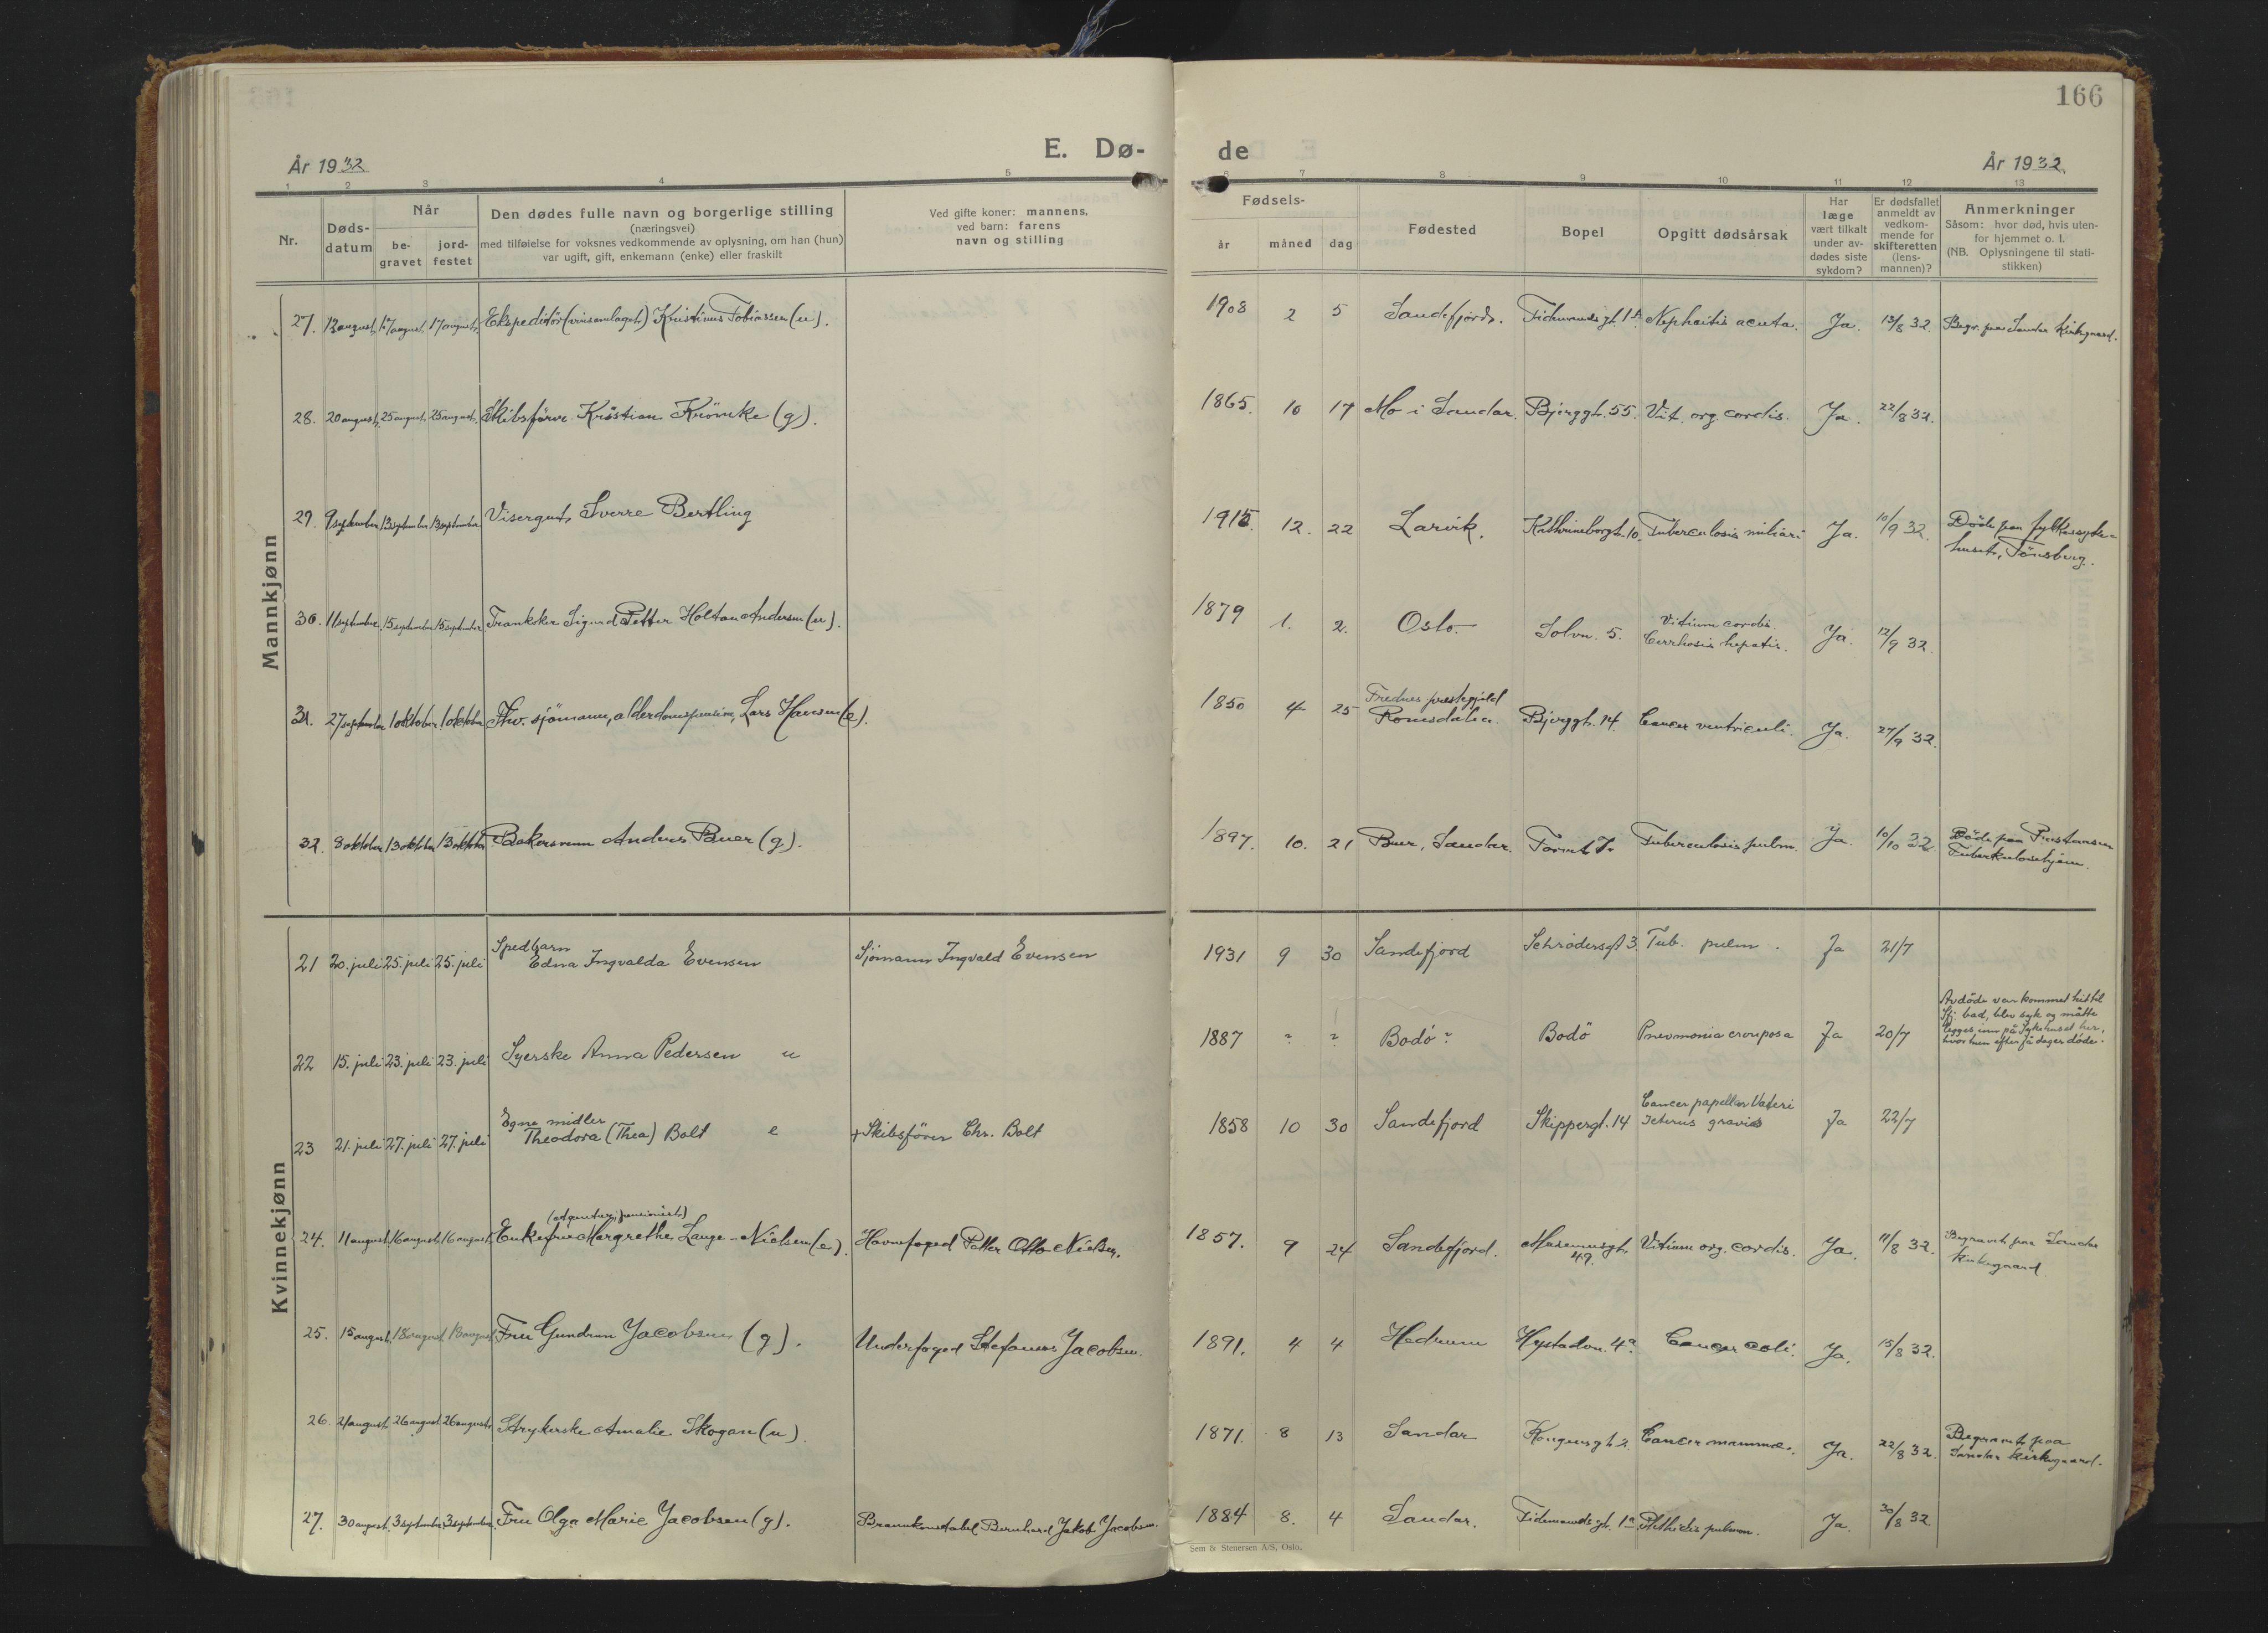 166
E. Dø-
de
År 1932
År 1932.
1 2 3 4 5 6 7 8 9 10 11 12 13
Nr.
Døds-
datum
Når
be-
gravet
jord-
festet
Den dødes fulle navn og borgerlige stilling
(næringsvei)
med tilføielse for voksnes vedkommende av oplysning, om han (hun)
var ugift, gift, enkemann (enke) eller fraskilt
Ved gifte koner: mannens,
ved barn: farens
navn og stilling
Fødsels-
år måned dag
Fødested
Bopel
Opgitt dødsårsak
Har
læge
vært tilkalt
under av-
dødes siste
sykdom?
Er dødsfallet
anmeldt av
vedkom-
mende for
skifteretten
(lens-
mannen)?
Anmerkninger
Såsom: hvor død, hvis uten-
for hjemmet o. l.
(NB. Oplysningene til stati-
stikken)
Mannkjønn
27. 12 august 17 august 17 august Ekspeditør (vinsamlaget) Kristinus Tobiassen (u). 1908 2 5 Sandefjord. Tidemandsgt. 1 A. Nephritis acuta. Ja. 13/8 32. Begr. paa Sandar Kirkegaard.
28. 20 august 25 august 25 august Skibsfører Kristian Krömke (g). 1865. 10 17 Mo i Sandar. Bjerggt. 55. Vit. org. cordis. Ja. 22/8 32.
29. 9 september 13 september 13 september Visergut Sverre Bertling 1915. 12. 22 Larvik. Kathrineborggt. 10. Tuberculosis miliari Ja. 10/9 32. Döde paa fylkessyke-
huset, Tönsberg.
30. 11 september 15 september 15 september Trankoker Sigurd Petter Holtan Andersen (u). 1879 1. 2. Oslo. Solvn. 5. Vitium cordis.
Cirrhosis hepatis. Ja. 12/9 32.
31. 27 september 1 oktober 1 oktober Fhv. sjömann, alderdomspension, Lars Hansen (e). 1850 4 25 Frednes prestegjeld
Romsdalen. Bjerggt. 14. Cancer ventriculi. Ja. 27/9 32.
32. 8 oktober 13 oktober 13 oktober Bakersvenn Anders Buer (g). 1897. 10. 21 Buer, Sandar. Tuberculosis pulm. Ja. 10/10 32. Döde paa
Tuberkulosehjem.
Kvinnekjønn
21 20. juli 25. juli 25. juli Spedbarn
Edna Ingvalda Evensen Sjömann Ingvald Evensen 1931 9 30 Sandefjord Schrødersgt 3 Tub. pulm. Ja 21/7
22 15. juli 23. juli 23. juli Syerske Anna Pedersen u 1887 ? ? Bodö? Bodö Pneumonia crouposa Ja 20/7 Avdöde var kommet hit til
Sfj. bad, blev syk og måtte
legges inn på Sykehuset her,
hvor hun efter få dager döde.
23 21. juli 27. juli 27. juli Egne midler
Theodora (Thea) Bolt e + Skibsfören Chr. Bolt 1858 10 30 Sandefjord Skippergt. 14 Cancer papellae Vateri
Icterus gravis Ja 22/7
24. 11 august 16 august 16 august Enkefrue Margrethe Lange-Nielsen (e). Havnefoged Petter Otto Nielsen. 1857. 9 24 Sandefjord.
49. Vitium org. cordis. Ja. 11/8 32. Begravet paa Sandar
Kirkegaard.
25. 15 august 18 august 18 august Fru Gundrun Jacobsen (g). Underfoged Stefanus Jacobsen. 1891. 4 4 Hedrum Hystadvn. 4a. Cancer coli. Ja. 15/8 32.
26. 21 august 26 august 26 august Strykerske Amalie Skogan (u). 1871. 8 13 Sandar Kongensgt. 2. Cancer mammae. Ja. 22/8 32. Begravet paa
Sandar Kirkegaard.
27. 30 august 3 september 3 september Fru Olga Marie Jacobsen (g). Brannkonstabel Bernhard Jakob Jacobsen. 1884 8. 4 Sandar. Tidemandsgt. 1a Phthisis pulmon. Ja. 30/8 32
Sem & Stenersen A/S, Oslo.